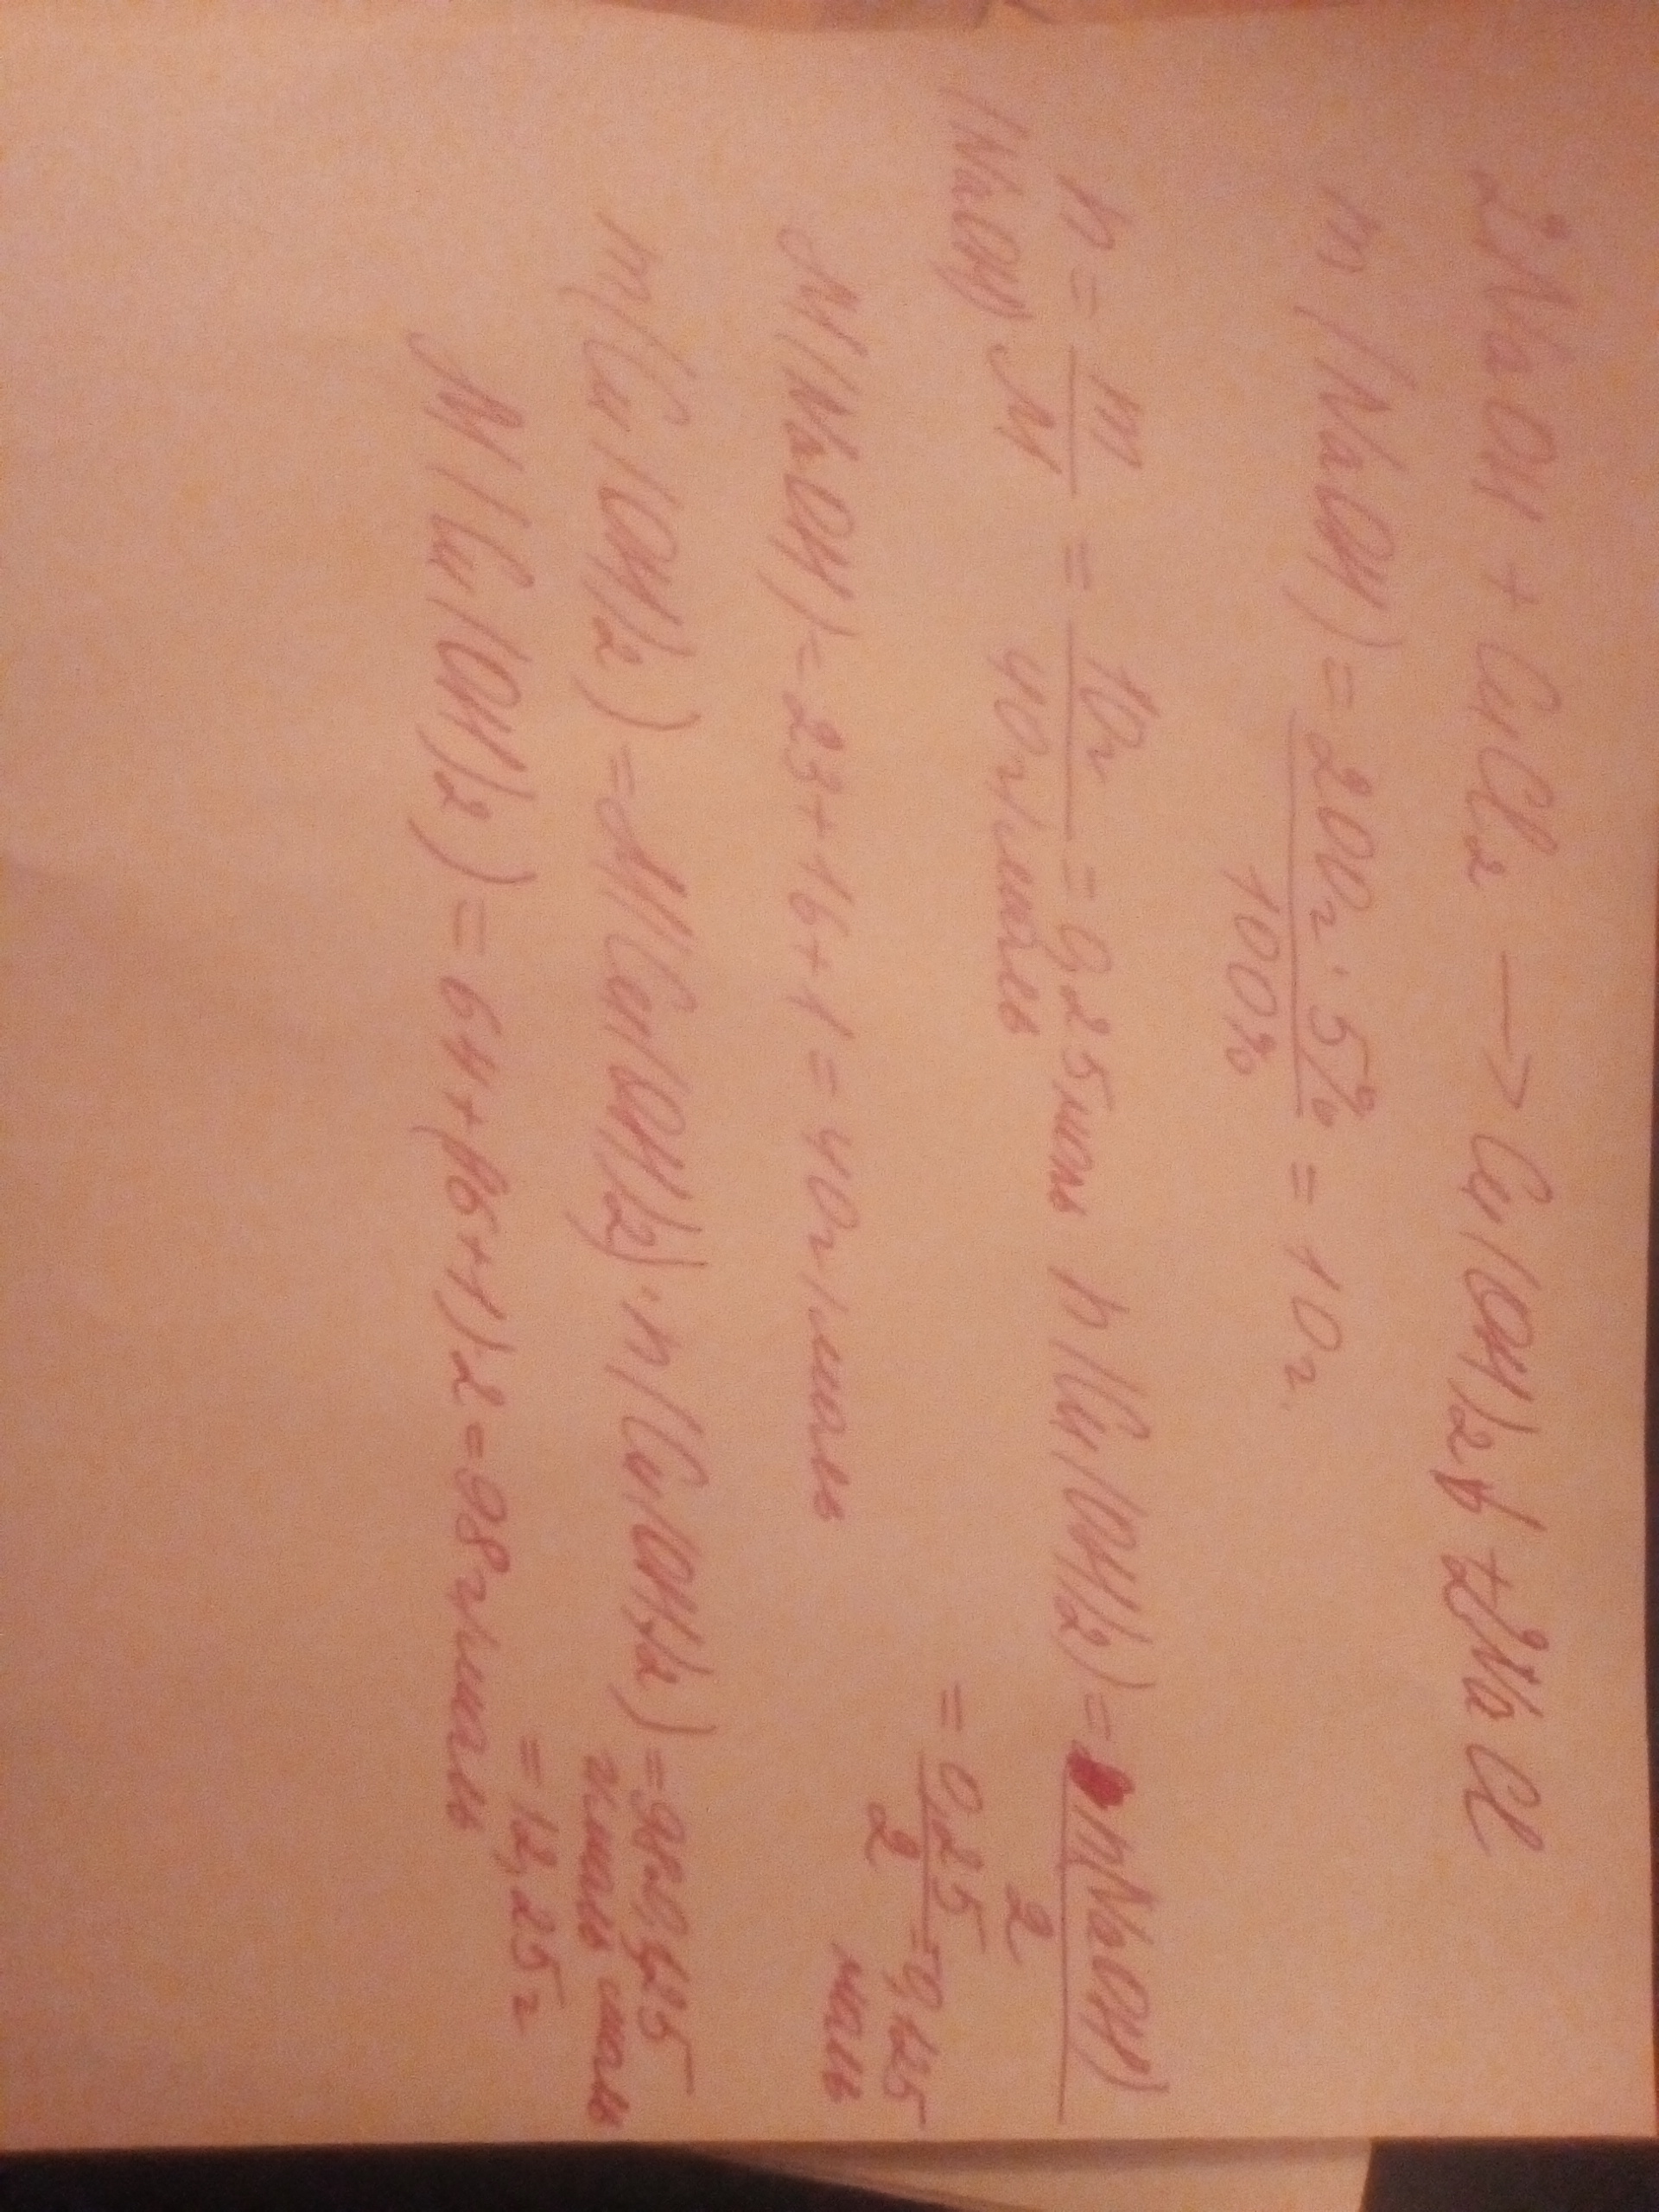 2NaOH + CuCl2 → Cu(OH)2↓ + 2NaCl
m(NaOH) = 200г·5% / 100% = 10г.
n(NaOH) = m / M = 10г / 40г/моль = 0,25моль n(Cu(OH)2) = n(NaOH) / 2
= 0,25 / 2 = 0,125 моль
M(NaOH) = 23+16+1 = 40г/моль
m(Cu(OH)2) = M(Cu(OH)2)·n(Cu(OH)2) = 98·0,125 г/моль моль
= 12,25г
M(Cu(OH)2) = 64+(16+1)2=98г/моль